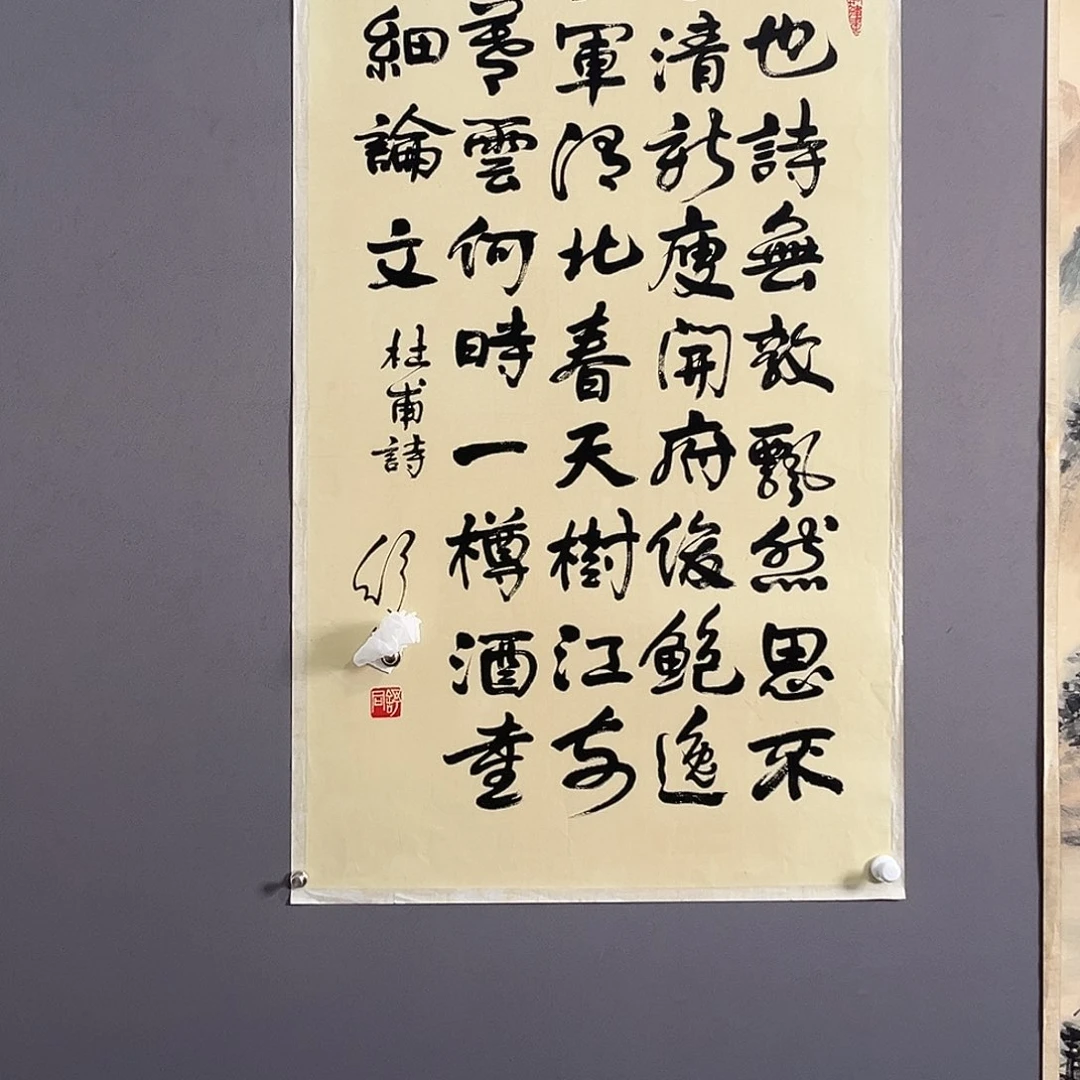 也詩無敵飄然思不
清新庾開府俊鮑逸
軍渭北春天樹江东
暮雲何時一樽酒重
細論文
杜甫詩
舒
舒同